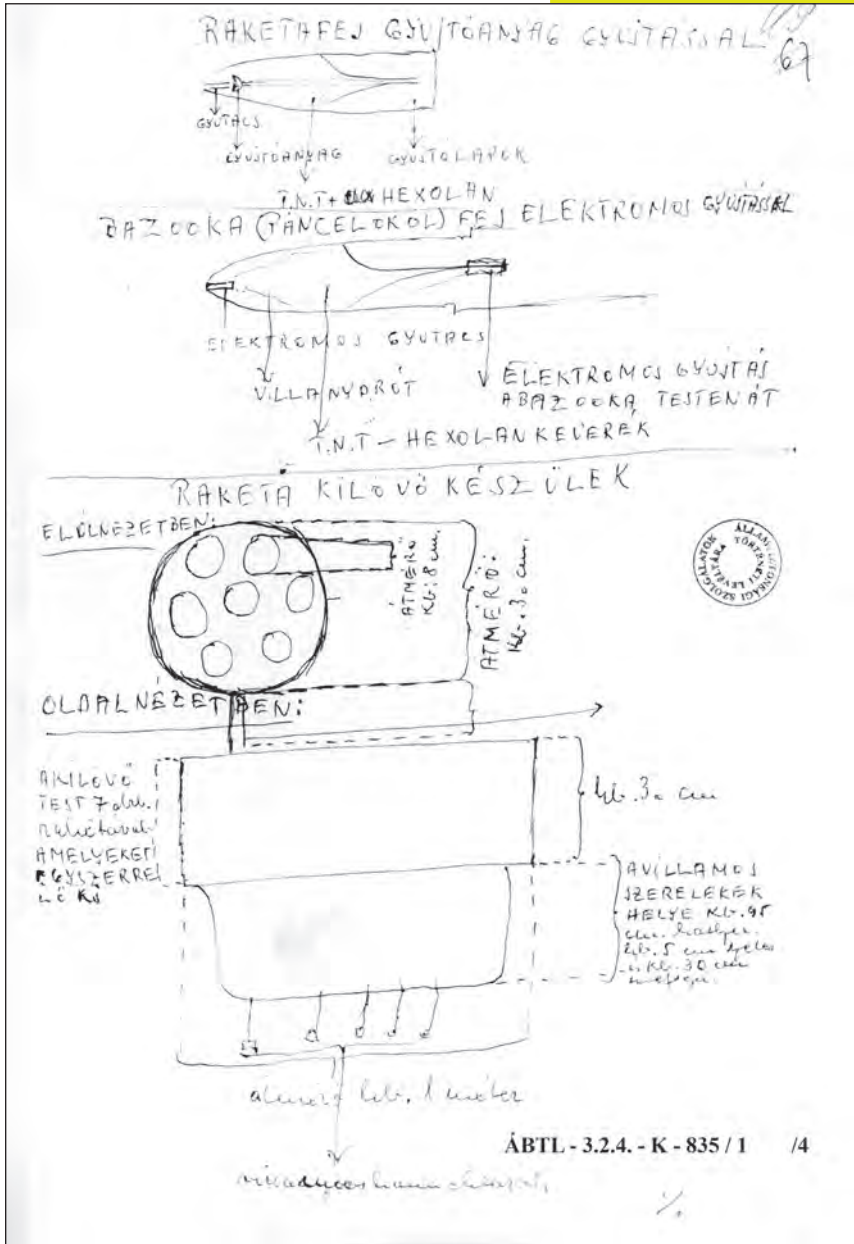 RAKETAFEJ GYUJTÓANYAG GYUJTÁSSAL
67
GYUTACS
GYUJTÓANYAG
GYUJTOLAPOK
T.N.T + HEXOLÁN
BAZOOKA (PÁNCELOKOL) FEJ ELEKTROMOS GYUJTÁSSAL
ELEKTROMOS GYUTACS
VILLANYDRÓT
ELEKTROMOS GYUJTÁS
A BAZOOKA TESTEN ÁT
T.N.T – HEXOLAN KEVERÉK
RAKETA KILOVŐ KÉSZÜLEK
ELÖLNEZETBEN:
ÁTMÉRŐ
Kb. 8 cm.
ÁTMÉRŐ:
Kb. 30 cm.
ÁLLAMBIZTONSÁGI SZOLGÁLATOK TÖRTÉNETI LEVÉLTÁRA
OLDALNÉZETBEN:
A KILOVŐ
TEST 7 drb.
rakétával
AMELYEKET
EGYSZERRE
LŐ KI
kb. 30 cm
A VILLAMOS
SZERELEKEK
HELYE Kb. 95
cm.
kb. 5 cm
kb. 30 cm
kb. 1 méter
ÁBTL - 3.2.4. - K - 835 / 1 /4